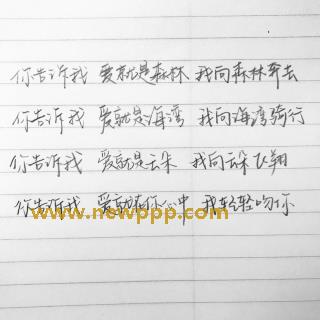 你告诉我 爱就是森林 我向森林奔去
你告诉我 爱就是海湾 我向海湾骑行
你告诉我 爱就是云朵 我向云朵飞翔
你告诉我 爱就在你心中 我轻轻吻你
www.newppp.com